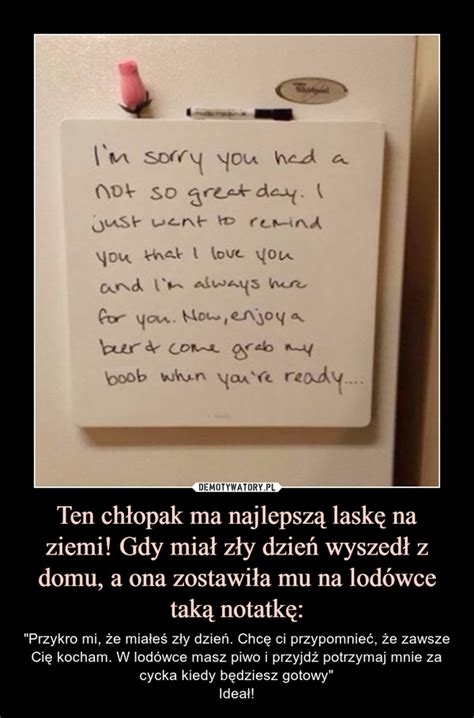 Whirlpool
I'm sorry you had a
not so great day. I
just want to remind
you that I love you
and I'm always here
for you. Now, enjoy a
beer & come grab my
boob when you're ready....
DEMOTYWATORY.PL
Ten chłopak ma najlepszą laskę na
ziemi! Gdy miał zły dzień wyszedł z
domu, a ona zostawiła mu na lodówce
taką notatkę:
"Przykro mi, że miałeś zły dzień. Chcę ci przypomnieć, że zawsze
Cię kocham. W lodówce masz piwo i przyjdź potrzymaj mnie za
cycka kiedy będziesz gotowy"
Ideał!